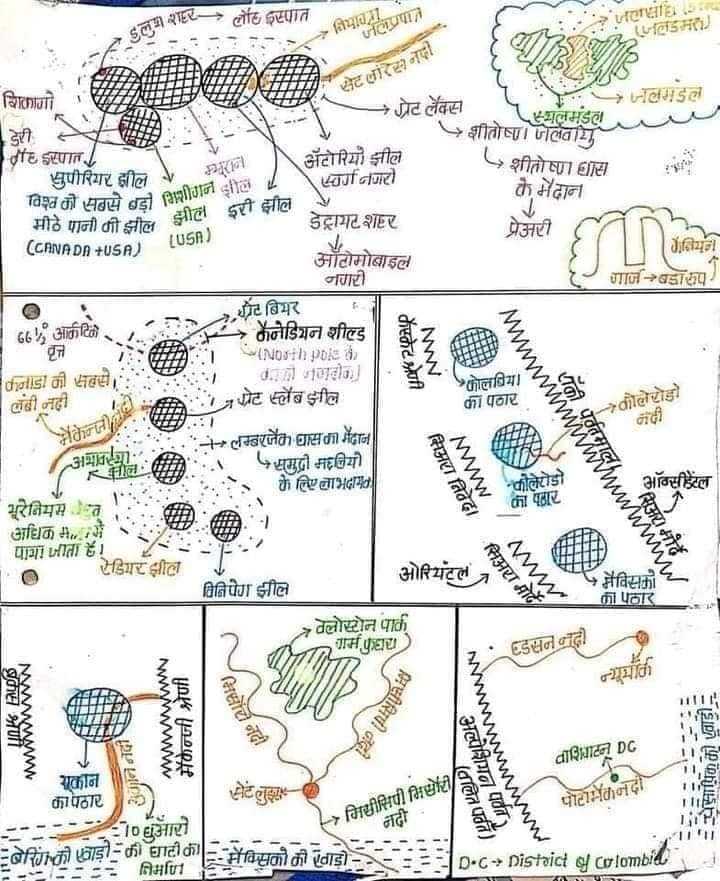 डुलुथ शहर → लौह इस्पात
जलप्रपात
सेंट लॉरेंस नदी
शिकागो
लौह इस्पात
सुपीरियर झील
विश्व की सबसे बड़ी
मीठे पानी की झील
(CANADA + USA)
मिशीगन
झील
(USA)
ह्यूरान
झील
इरी झील
→ ग्रेट लैक्स
ऑटोरियो झील
स्वर्ग नगरी
डेट्रायट शहर
ऑटोमोबाइल
नगरी
(जलडमरु)
→ जलमंडल
स्थलमंडल
→ शीतोष्ण जलवायु
→ शीतोष्ण घास
के मैदान
प्रेअरी
कैनियन
गार्ज → बडा रुप
66½° आर्कटिक
वृत्त
ग्रेट बियर
→ कैनेडियन शील्ड
(North pole के
कनाडा की सबसे
लंबी नदी
मैकेन्जी नदी
→ ग्रेट स्लैब झील
→ लम्बरजैक घास का मैदान
समुद्री मछलियो
के लिए लाभदायक
झील
यूरेनियम
अधिक
पाया जाता है।
रेडियर झील
विनिपेग झील
कास्केट श्रेणी
कोलंबिया
का पठार
रॉकी पर्वतमाला
→ कोलेरोडो
नदी
सिअरा निवेदा
कोलेरोडो
का पठार
ऑक्सीडेंटल
सिअरा मोर्दे
ओरियंटल
सिअरा मोर्दे
→ मैक्सिको
का पठार
ब्रुक्श श्रेणी
मैकेन्जी श्रेणी
यूकान
का पठार
10 धुँआरो
की घाटी का
निर्माण
बेरिंग की खाड़ी
→ वेलोस्टोन पार्क
गर्म फुहारा
मिसौरी नदी
मिसीसिपी नदी
सेंट लुइस
→ मिसीसिपी मिसौरी
नदी
मैक्सिको की खाड़ी
हडसन नदी
न्यूयॉर्क
अप्लेशियन पर्वत
(वलित पर्वत)
वाशिंगटन DC
पोटोमेक नदी
की खाड़ी
D.C → District of Colombia